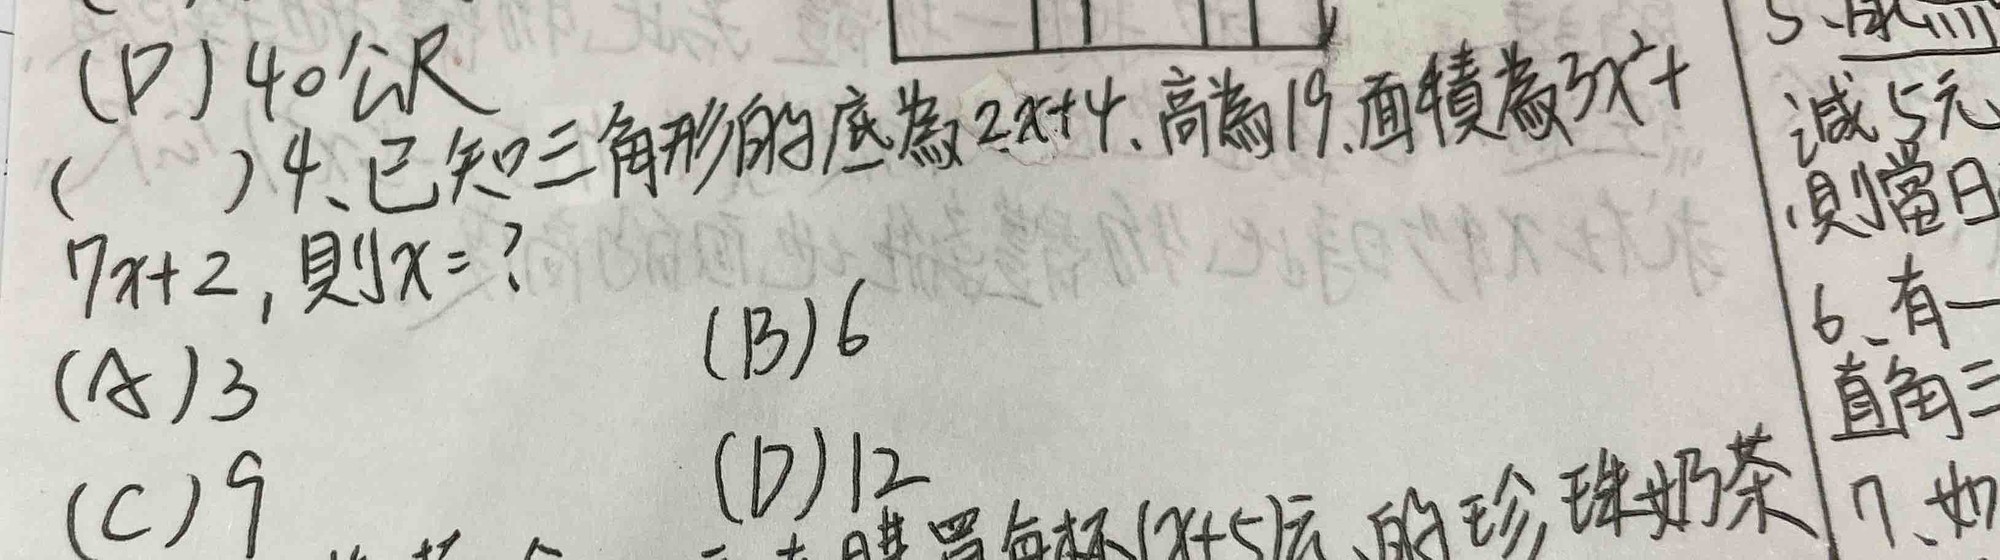 (D) 40公尺
( )4、已知三角形的底為2x+4、高為19、面積為3x²+
7x+2,則x=?
(A) 3
(B) 6
(C) 9
(D) 12
買每杯(x+5)元、的珍珠奶茶
5、
減5元
則當日
6、有一
直角三
7、如